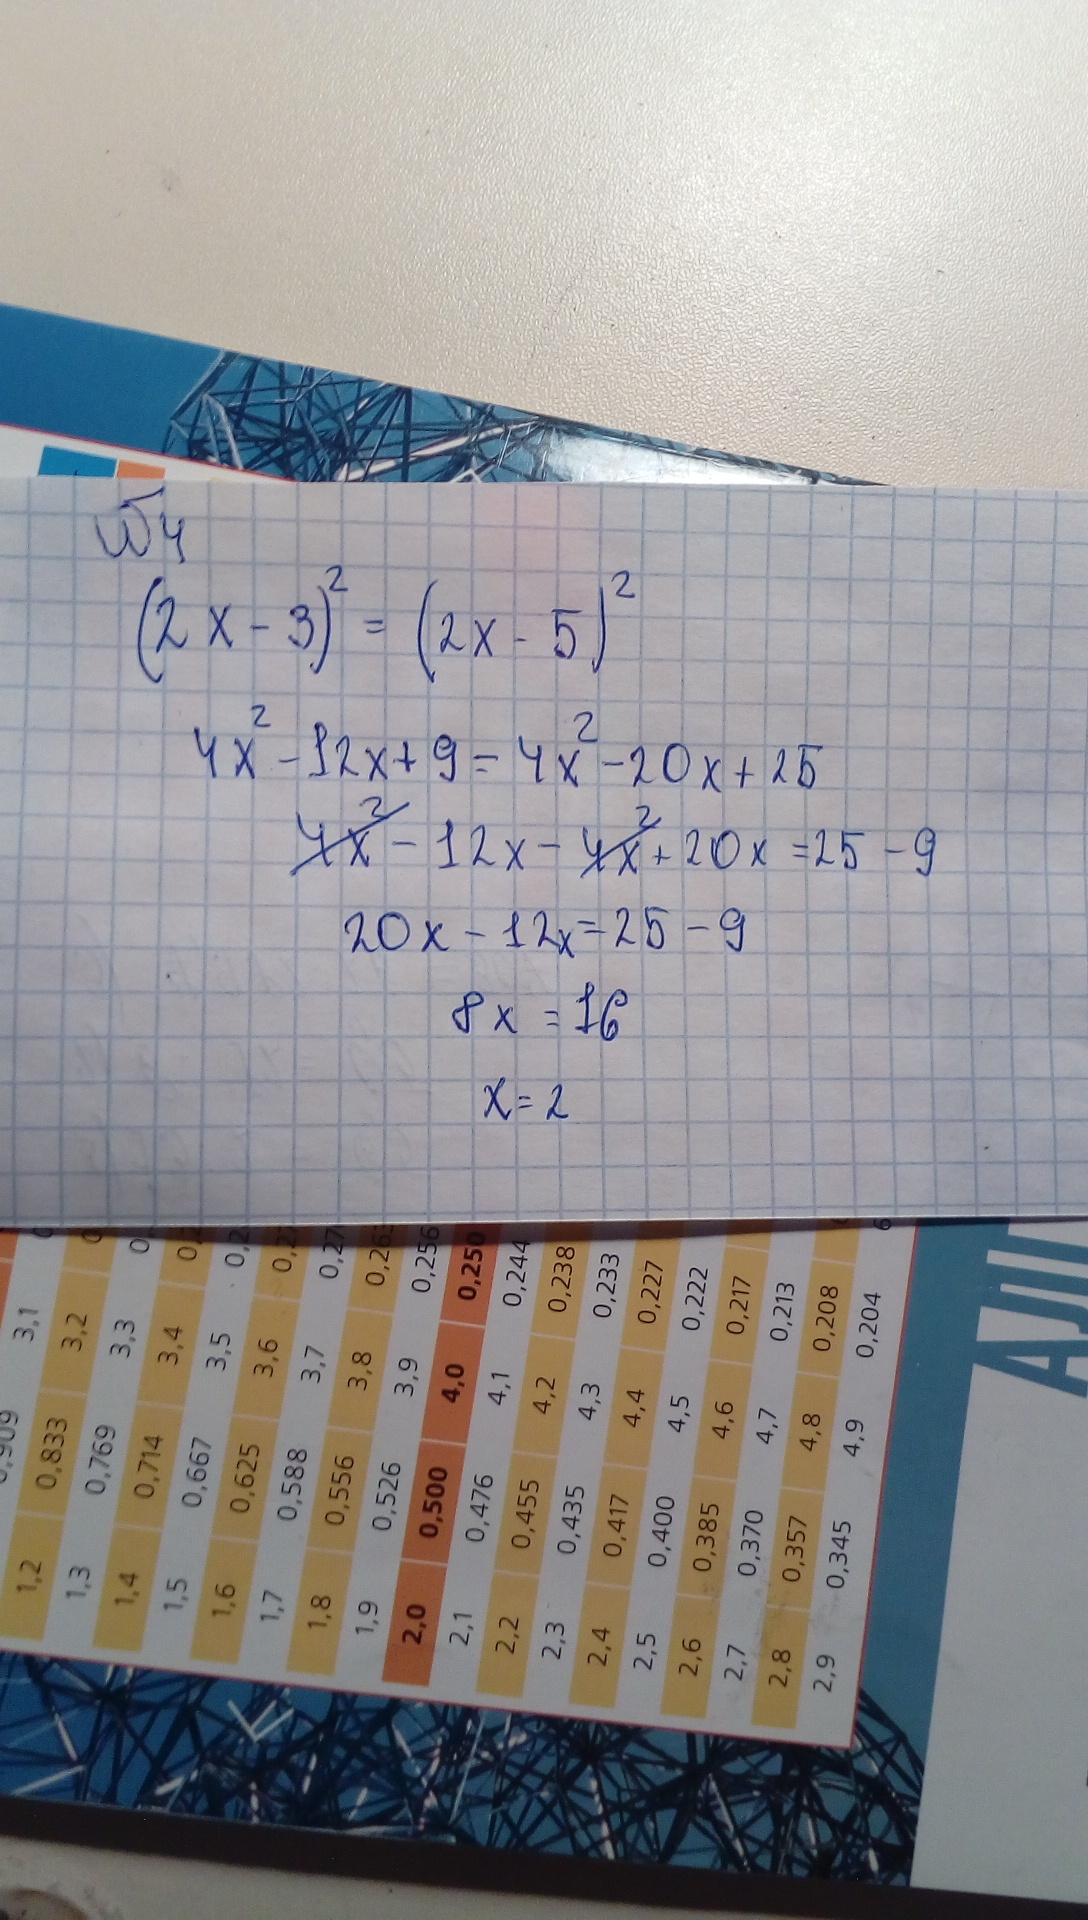 №4
(2x-3)² = (2x-5)²
4x²-12x+9=4x²-20x+25
4x²-12x-4x²+20x=25-9
20x-12x=25-9
8x=16
x=2
1,2 0,833 3,2
1,3 0,769 3,3
1,4 0,714 3,4
1,5 0,667 3,5
1,6 0,625 3,6
1,7 0,588 3,7
1,8 0,556 3,8
1,9 0,526 3,9 0,256
2,0 0,500 4,0 0,250
2,1 0,476 4,1 0,244
2,2 0,455 4,2 0,238
2,3 0,435 4,3 0,233
2,4 0,417 4,4 0,227
2,5 0,400 4,5 0,222
2,6 0,385 4,6 0,217
2,7 0,370 4,7 0,213
2,8 0,357 4,8 0,208
2,9 0,345 4,9 0,204
3,1